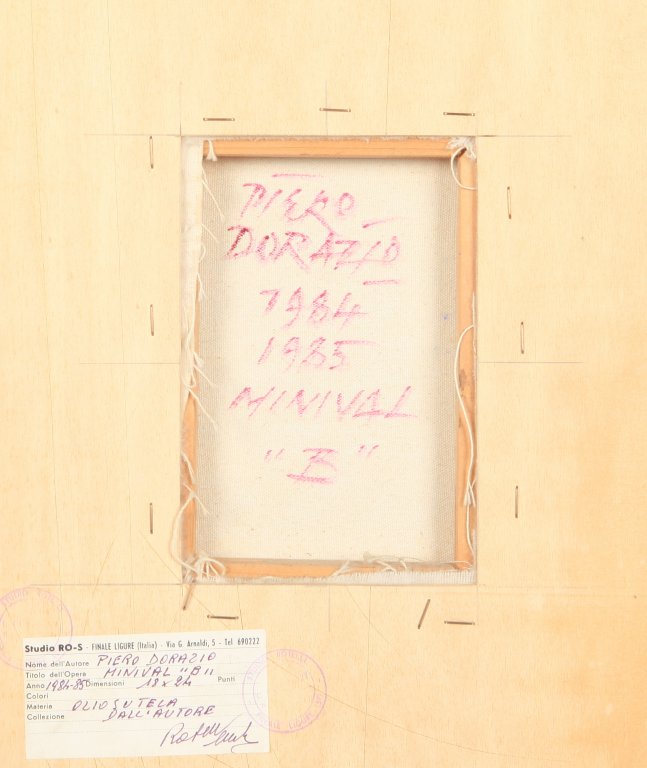 PIERO
DORAZIO
1984
1985
MINIVAL
"B"
Studio RO-S - FINALE LIGURE (Italia) - Via G. Arnaldi, 5 - Tel 690222
Nome dell'Autore PIERO DORAZIO
Titolo dell'Opera MINIVAL "B"
Anno 1984-85 Dimensioni 18 x 24 Punti
Colori
Materia OLIO SU TELA
Collezione DALL'AUTORE